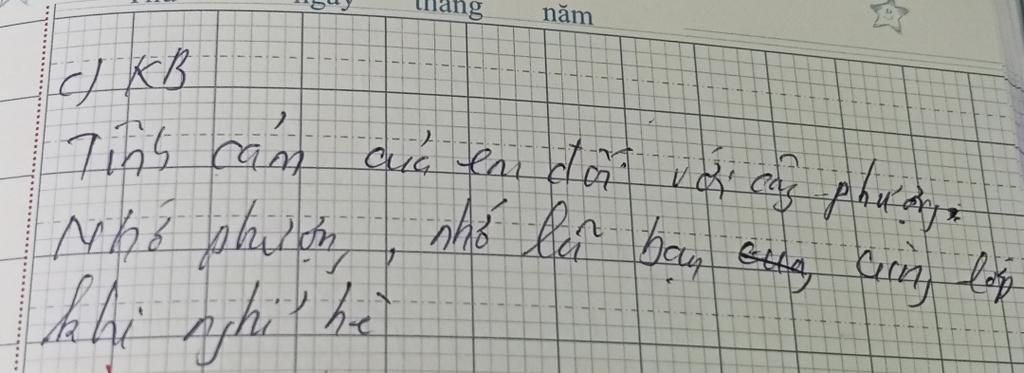 ngày tháng năm
c) KB
Tình cảm của em đối với cây phượng.
Nhớ phượng, nhớ bạn cùng lớp
khi nghỉ hè